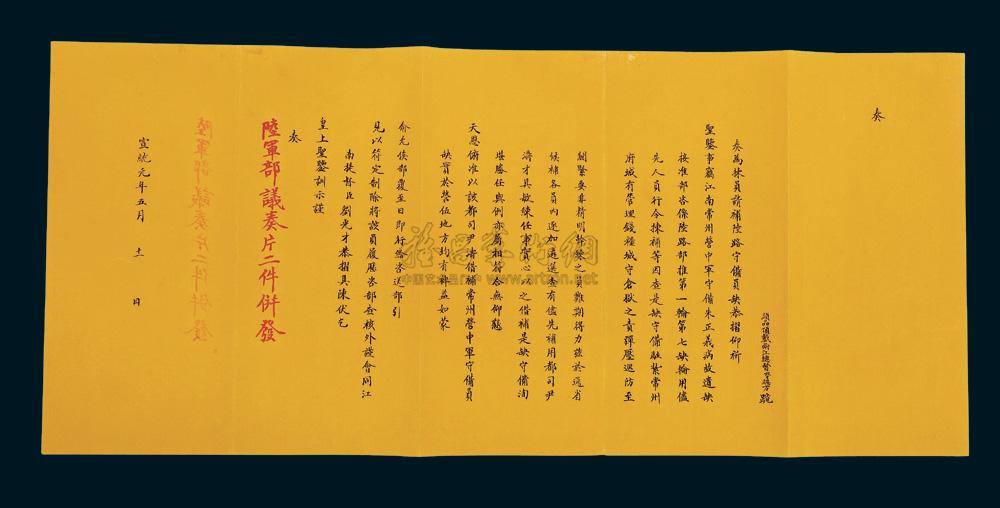 奏
頭品頂戴兩江總督臣端方跪
奏為揀員請補陸路守備員缺恭摺仰祈
聖鑒事竊江南常州營中軍守備朱正義病故遺缺
接准部咨係陸路部推第一輪第七缺輪用儘
先人員行令揀補等因查是缺守備駐紮常州
府城有管理錢糧城守倉獄之責彈壓巡防至
關緊要非精明幹練之員難期得力茲於通省
候補各員內逐加遴選查有儘先補用都司尹
濤才具敏練任事實心以之借補是缺守備洵
堪勝任與例亦屬相符合無仰懇
天恩俯准以該都司尹濤借補常州營中軍守備員
缺實於營伍地方均有裨益如蒙
俞允俟部覆至日即行給咨送部引
見以符定制除將該員履歷咨部查核外謹會同江
南提督臣劉光才恭摺具陳伏乞
皇上聖鑒訓示謹
奏
陸軍部議奏片二件併發
宣統元年五月 十一 日
中国艺术品门户网
www.artron.net